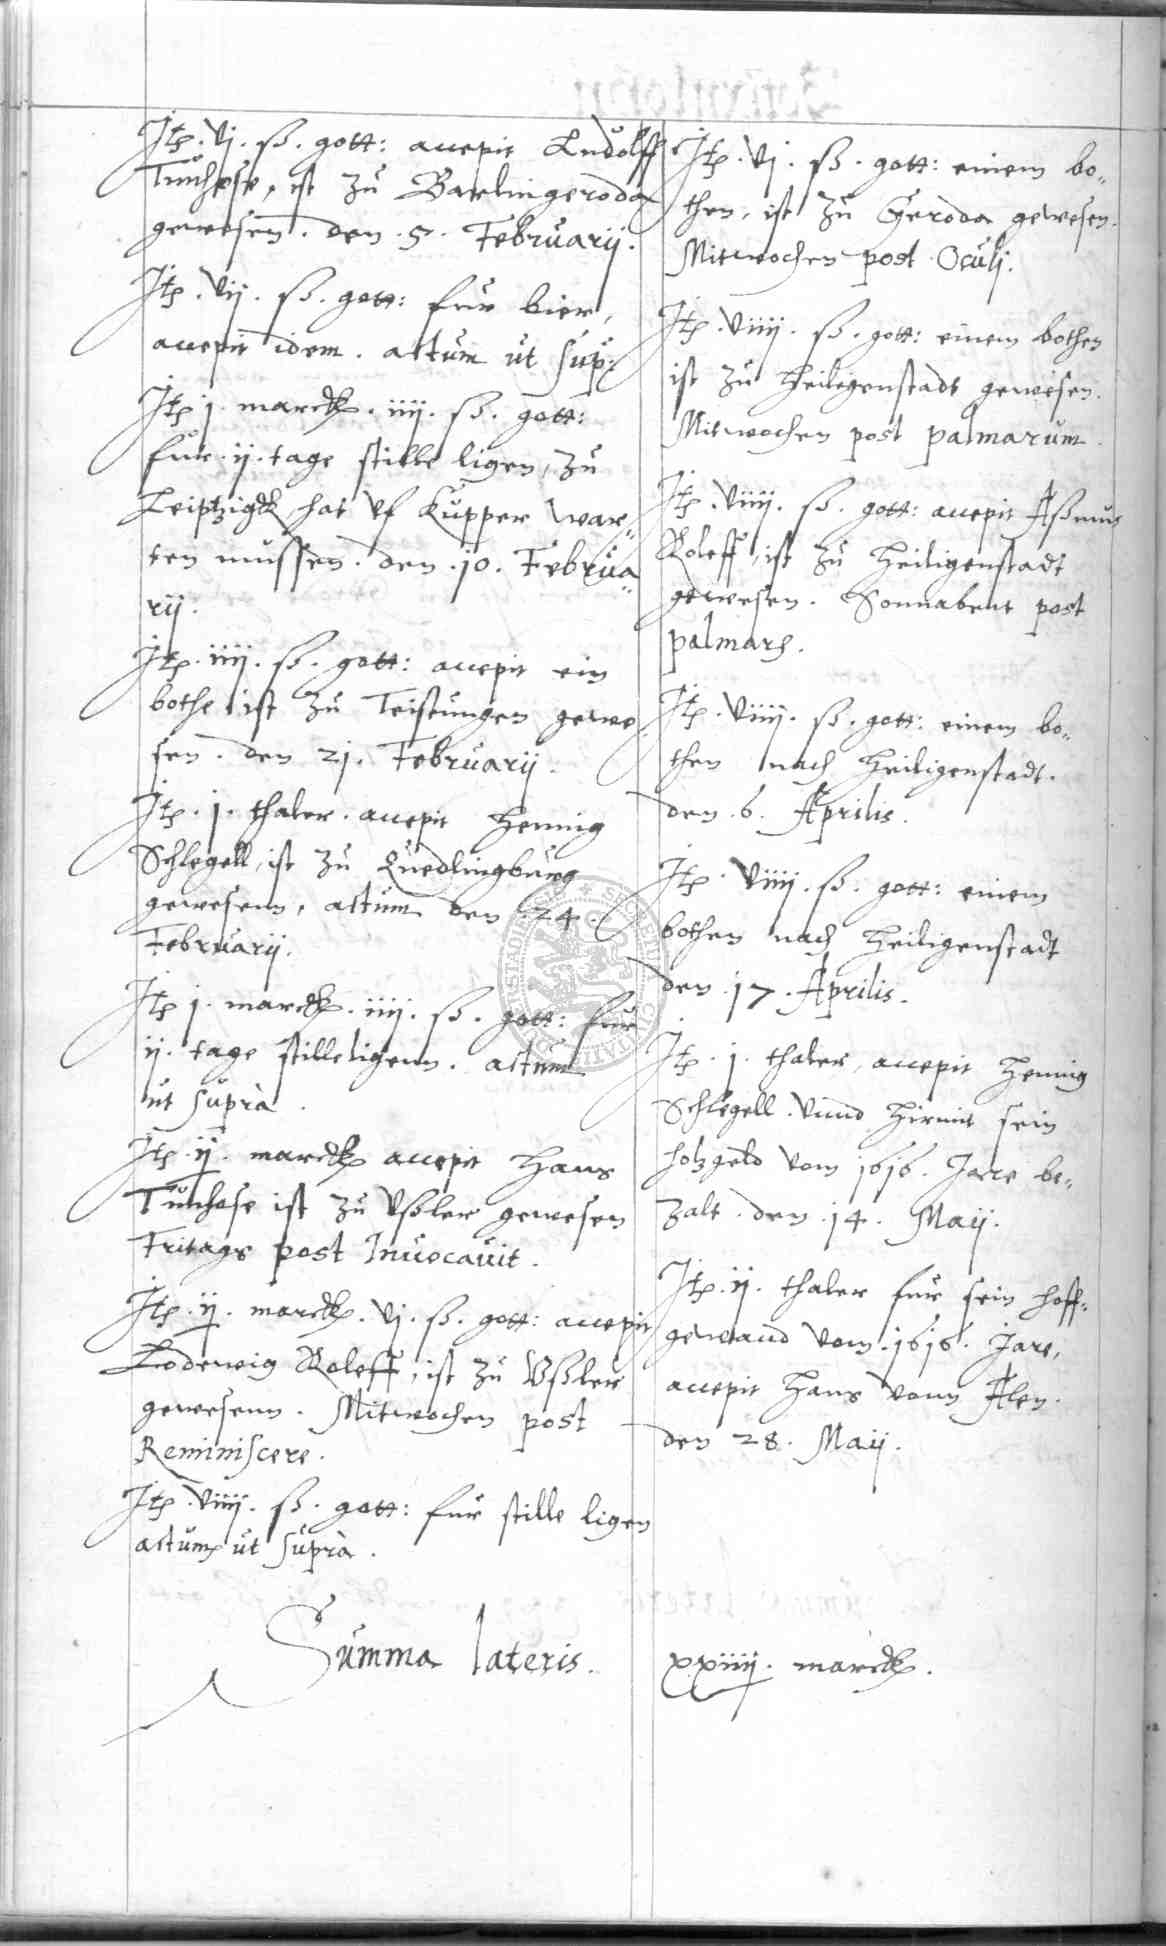 Itp. vj. ß. gott: accepit Ludolff
Tunhose, ist zu Barlingeroda
gewesen. den .5. Februarij.
Itp. vij. ß. gott: fur bier,
accepit idem. actum ut sup:
Itp j. marck. iiij. ß. gott:
fur .ij. tage stille ligen, zu
Leiptzigk, hat vf Kupper war„
ten mussen. den .10. Februa„
rij.
Itp. iiij. ß. gott: accepit ein
bothe ist zu Teistungen gewe„
sen. den 21. Februarij.
Itp. j. thaler. accepit Hennig
Schlegell, ist zu Quedlingburg
gewesenn, actum den .24.
Februarij.
Itp j. marck. iiij. ß. gott: fur
ij. tage stilleligenn. actum
ut supra.
Itp. ij. marck accepit Hans
Tunhose ist zu Vßler gewesen
Fritags post Invocavit.
Itp. ij. marck. vj. ß. gott: accepit
Lodewig Roleff, ist zu Vßler
gewesenn. Mitwochen post
Reminiscere.
Itp viiij. ß. gott: fur stille ligen
actum ut supra.
Itp. vj. ß. gott: einem bo„
then, ist zu Geroda gewesen.
Mitwochen post Oculj.
Itp. viiij. ß. gott: einem bothen
ist zu Heiligenstadt gewesen.
Mitwochen post palmarum.
Itp. viiij. ß. gott: accepit Aßmus
Roleff, ist zu Heiligenstadt
gewesen. Sonnabent post
palmarum.
Itp. viiij. ß. gott: einem bo„
then nach Heiligenstadt.
den .6. Aprilis.
Itp. viiij. ß. gott: einem
bothen nach Heiligenstadt
den .17. Aprilis.
Itp. j. thaler, accepit Hennig
Schlegell. vnnd hirmit sein
holzgeld vom 1616. Jare be„
zalt. den .14. Maij.
Itp. ij. thaler fur sein hoff„
gewand vom .1616. Jare,
accepit Hans vonn Alen.
den 28. Maij.
Summa lateris. xxiiij. marck.